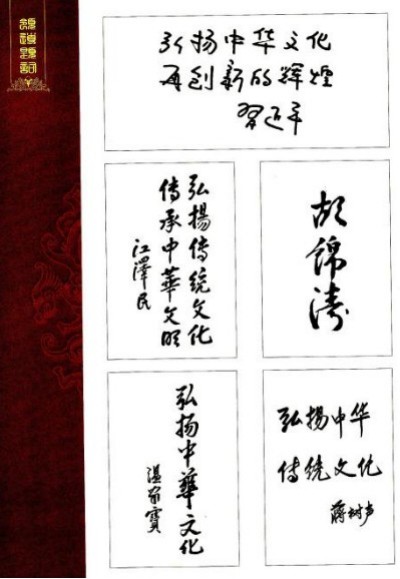 领导题词
弘扬中华文化
再创新的辉煌
习近平
弘揚传統文化
传承中華文明
江澤民
胡锦濤
弘扬中華文化
温家寳
弘揚中华
传统文化
蒋树声